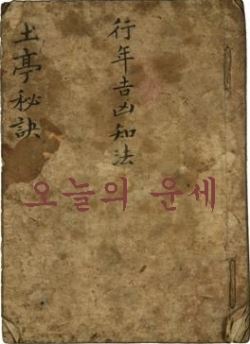 行年吉凶知法
土亭秘訣
오늘의 운세